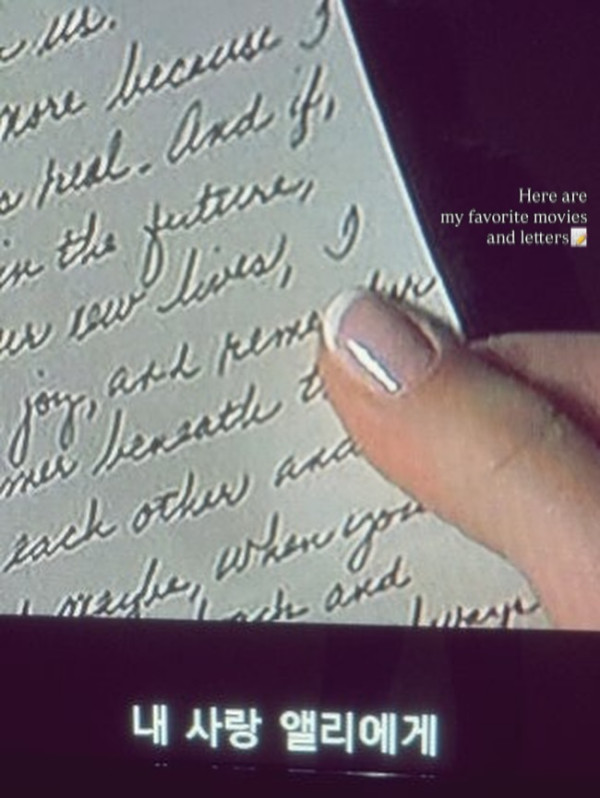 us.
more because I
real. And if,
in the future,
new lives, I
joy, and
beneath
each other and
maybe, when you
and
Here are
my favorite movies
and letters📝
내 사랑 앨리에게